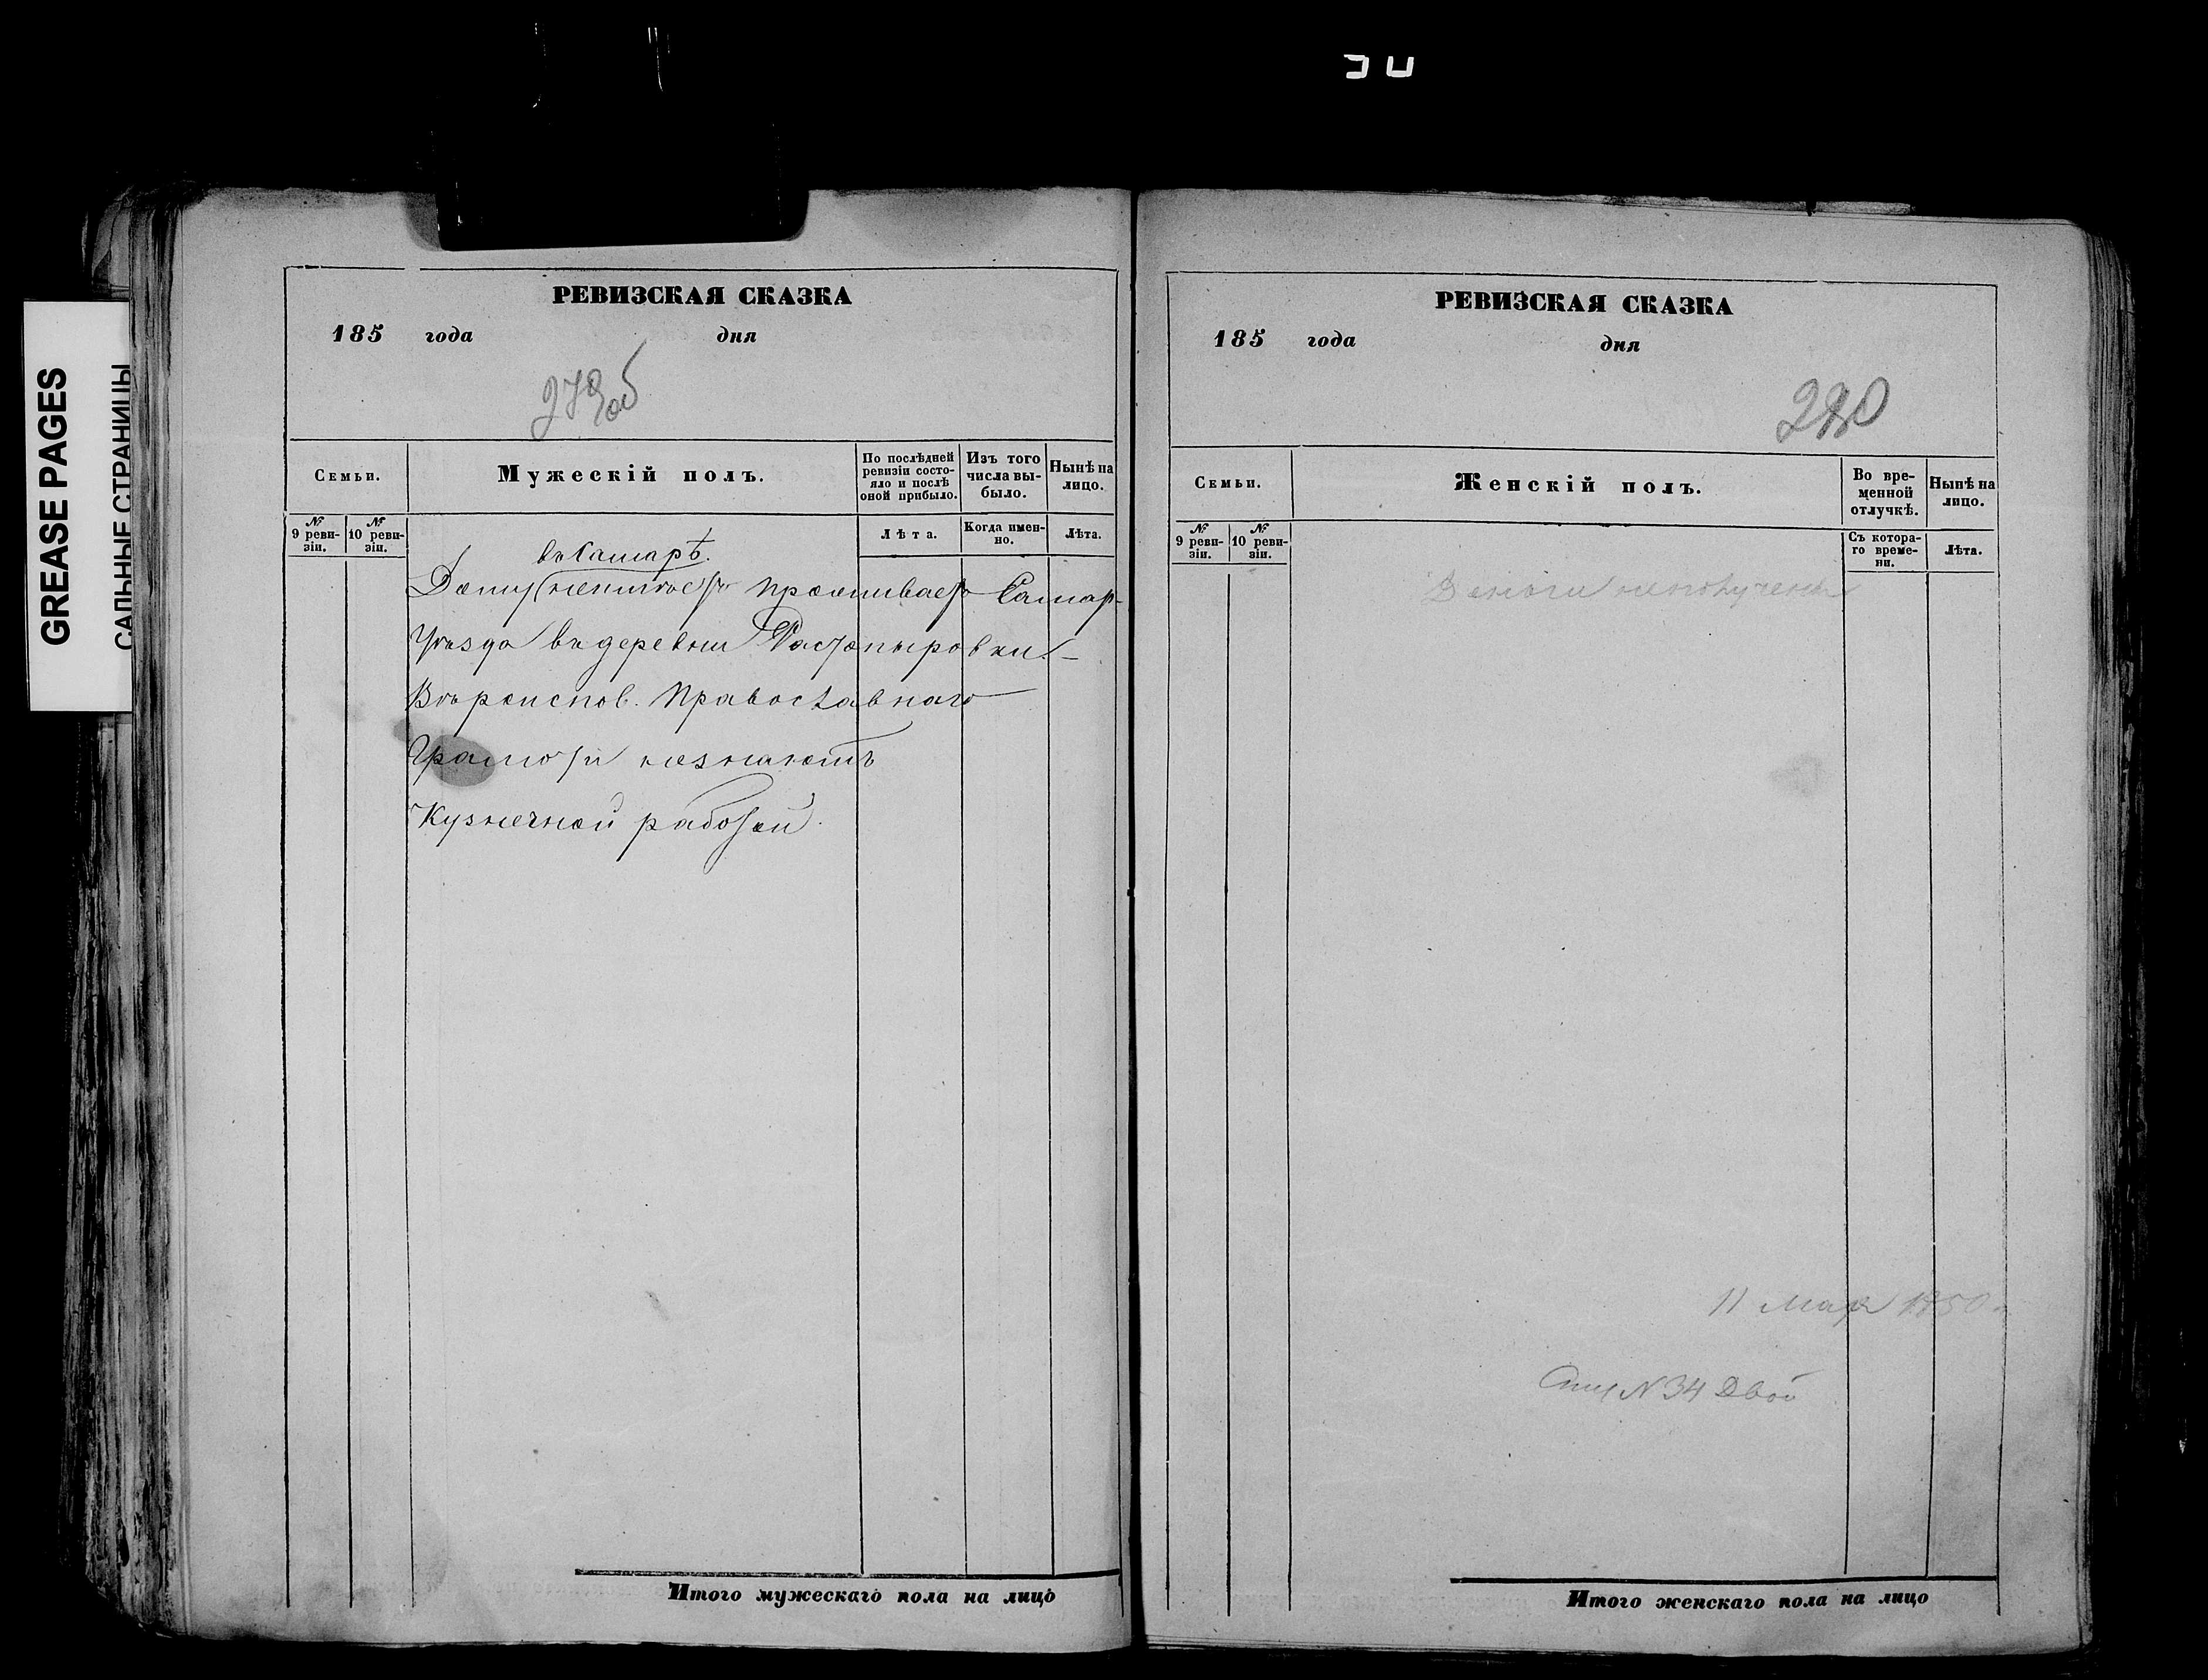 GREASE PAGES
САЛЬНЫЕ СТРАНИЦЫ
РЕВИЗСКАЯ СКАЗКА
185 года дня
279об
Семьи.
Мужескій полъ.
По послѣдней ревизіи состояло и послѣ оной прибыло.
Изъ того числа выбыло.
Нынѣ на лицо.
№ 9 ревизіи.
№ 10 ревизіи.
Лѣта.
Когда именно.
Лѣта.
въ Самарѣ.
Дому неимѣетъ проживаетъ Самар.
Уѣзда въ деревни Растопыровки.
Вѣроиспов. Православнаго
Грамоти незнаютъ
Кузнечной работой.
Итого мужескаго пола на лицо
РЕВИЗСКАЯ СКАЗКА
185 года дня
280
Семьи.
Женскій полъ.
Во временной отлучкѣ.
Нынѣ на лицо.
№ 9 ревизіи.
№ 10 ревизіи.
Съ котораго времени.
Лѣта.
Деньги неполучены
11 Мар
N 34
Итого женскаго пола на лицо